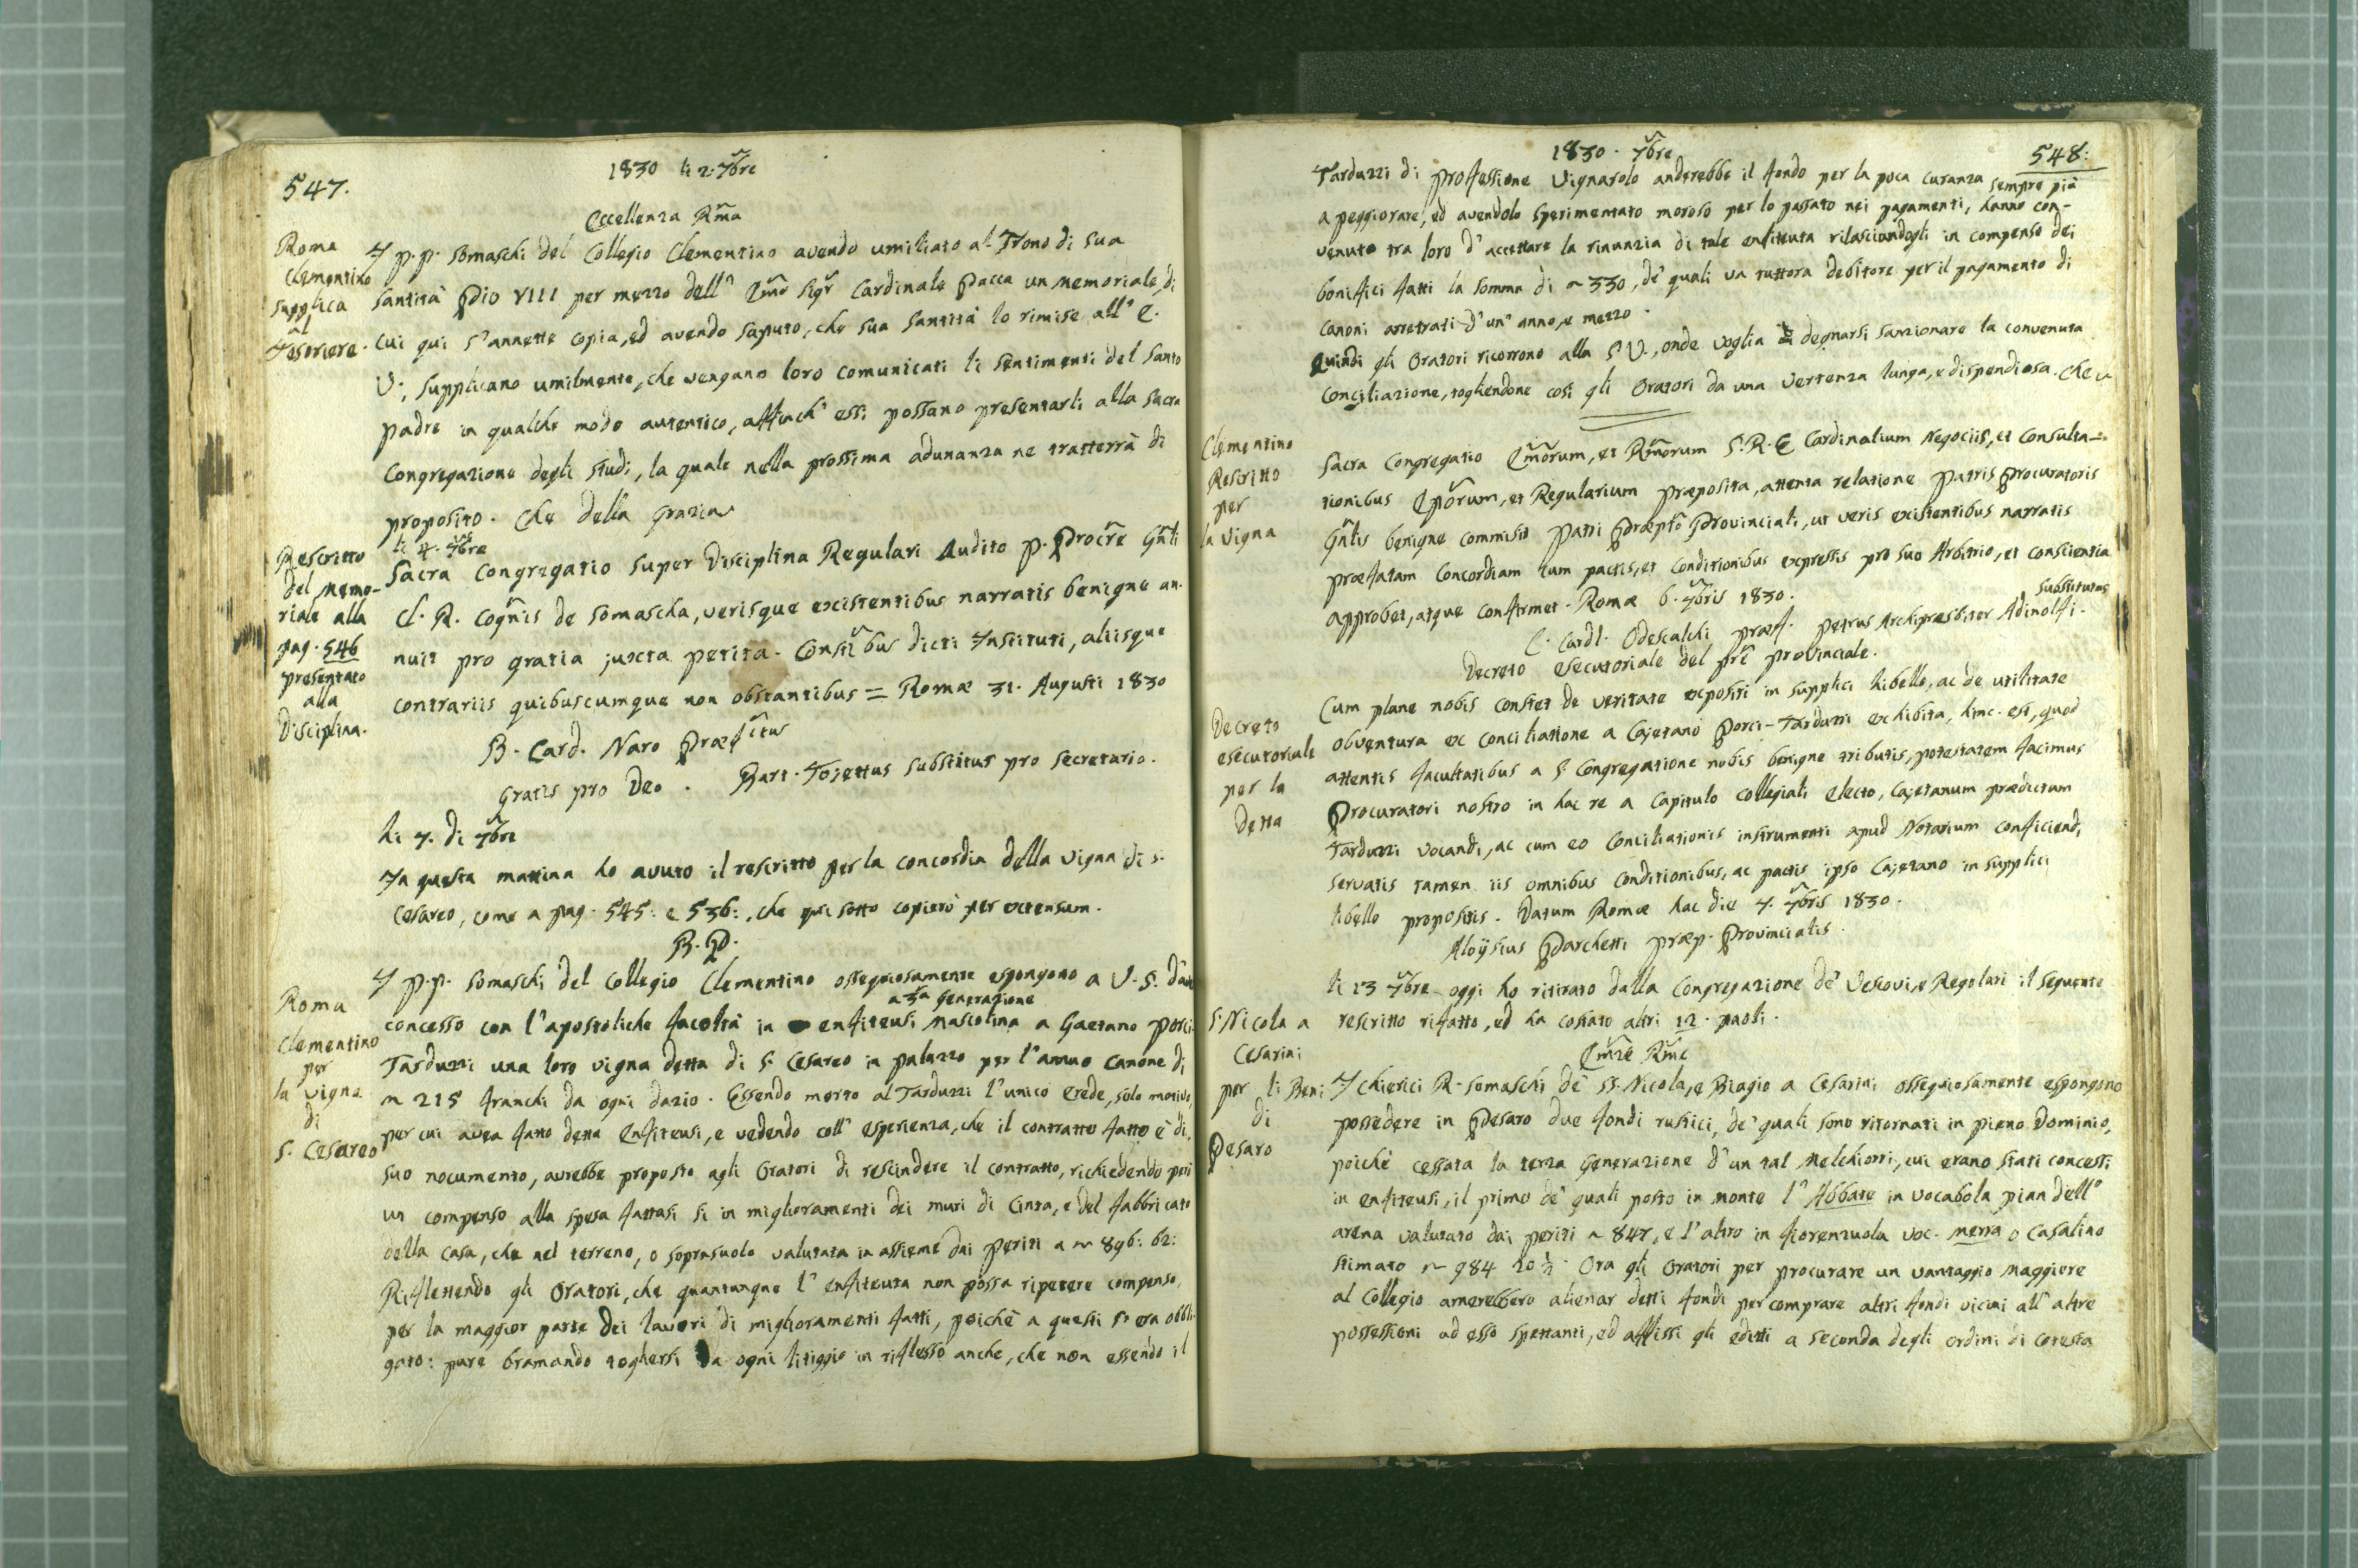 547.
1830 li 2. 7bre
Eccellenza Rma
Roma
Clementino
supplica
al
Tesoriere.
I P.P. Somaschi del Collegio Clementino avendo umiliato al Trono di Sua
Santità Pio VIII per mezzo dell' Emo Sigr Cardinale Pacca un memoriale, di
cui qui s'annette copia, ed avendo saputo, che sua Santità lo rimise all' E.
V., supplicano umilmente, che vengano loro comunicati li sentimenti del Santo
Padre in qualche modo autentico, affinch' essi possano presentarli alla Sacra
Congregazione degli Studi, la quale nella prossima adunanza ne tratterrà di
proposito. Che della Grazia
li 4. 7bre
Rescritto
del Memo-
riale alla
pag. 546
presentato
alla
Disciplina.
Sacra Congregatio super Disciplina Regulari Audito P. Procre Gnli
Cl. R. Cognis de Somascha, verisque existentibus narratis benigne an-
nuit pro gratia juxta petita. Constibus dicti Instituti, aliisque
contrariis quibuscumque non obstantibus = Romæ 31. Augusti 1830
B. Card. Naro Præfctus
Gratis pro Deo. Bart. Tosettus substitus pro secretario.
Li 7. di 7bre
In questa mattina ho avuto il rescritto per la concordia della vigna di S.
Cesareo, come a pag. 545: e 536:, che qui sotto copierò per extensum.
B. P.
Roma
Clementino
per
la vigna
di
S. Cesareo
I P.P. Somaschi del Collegio Clementino ossequiosamente espongono a V. S. d'aver
a 3a Generazione
concesso con l'apostoliche facoltà in enfiteusi mascolina a Gaetano Porci
Tarduzzi una loro vigna detta di S. Cesareo in palazzo per l'annuo canone di
~ 215 franchi da ogni dazio. Essendo morto al Tarduzzi l'unico Erede, solo motivo,
per cui avea fatto detta Enfiteusi, e vedendo coll' esperienza, che il contratto fatto è di
suo nocumento, avrebbe proposto agli Oratori di rescindere il contratto, richiedendo però
un compenso alla spesa fattasi si in miglioramenti dei muri di Cinta, e del fabbricato
della casa, che nel terreno, o soprasuolo valutata in assieme dai Periti a ~ 896: 62:
Riflettendo gli Oratori, che quantunque l' enfiteuta non possa ripetere compenso
per la maggior parte dei lavori di miglioramenti fatti, poichè a questi s'era obbli-
gato: pure bramando togliersi da ogni litiggio in riflesso anche, che non essendo il
1830. 7bre
548:
Tarduzzi di professione Vignarolo anderebbe il fondo per la poca curanza sempre più
a peggiorare, ed avendolo sperimentato moroso per lo passato nei pagamenti, hanno con-
venuto tra loro d' accettare la rinunzia di tale enfiteuta rilasciandogli in compenso dei
bonifici fatti la somma di ~ 330, de' quali va tuttora debitore per il pagamento di
canoni arretrati d' un' anno, e mezzo.
Quindi gli Oratori ricorrono alla S. V., onde voglia degnarsi sanzionare la convenuta
Conciliazione, togliendone così gli Oratori da una vertenza lunga, e dispendiosa. Che
Clementino
Rescritto
per
la Vigna
Sacra Congregatio Emorum, et Rmorum S. R. E Cardinalium Negociis, et Consulta-
tionibus Eporum, et Regularium præposita, attenta relatione Patris Procuratoris
Gnlis benigne commisit Patri Præpto Provinciali, ut veris existentibus narratis
præfatam Concordiam cum pactis, et conditionibus expressis pro suo Arbitrio, et conscientia
approbet, atque confirmet. Romæ 6. 7bris 1830.
substitutus
C. Cardl. Odescalchi præf. Petrus Archipresbiter Adinolfi.
Decreto esecutoriale del Pre Provinciale.
Decreto
esecutoriale
per la
detta
Cum plane nobis constet de veritate expositi in supplici libello, ac de utilitate
obventura ex conciliatione a Cajetano Porci-Tarduzzi exhibita, hinc est, quod
attentis facultatibus a S. Congregatione nobis benigne tributis, potestatem facimus
Procuratori nostro in hac re a Capitulo collegiali electo, Cajetanum prædictum
Tarduzzi vocandi, ac cum eo Conciliationis instrumenti apud Notarium conficiendi
servatis tamen iis omnibus conditionibus, ac pactis ipso Cajetano in supplici
libello propositis. Datum Romæ hac die 7. 7bris 1830.
Aloÿsius Parchetti Præp. Provincialis.
li 13 7bre oggi ho ritirato dalla Congregazione de' Vescovi, e Regolari il seguente
rescritto rifatto, ed ha costato altri 12. paoli.
S. Nicola a
Cesarini
per li Beni
di
Pesaro
Emze Rme
I Chierici R. Somaschi de' SS. Nicola, e Biagio a Cesarini ossequiosamente espongono
possedere in Pesaro due fondi rustici, de' quali sono ritornati in pieno Dominio,
poichè cessata la terza Generazione d' un tal Melchiorri, cui erano stati concessi
in enfiteusi, il primo de' quali posto in monte l' Abbate in vocabola pian dell'
arena valutato dai periti ~ 847, e l' altro in fiorenzuola voc. merra o Casalino
stimato ~ 984 20 ½. Ora gli Oratori per procurare un vantaggio maggiore
al Collegio amerebbero alienar detti fondi per comprare altri fondi vicini all' altre
possessioni ad esso spettanti, ed affissi gli editti a seconda degli ordini di cotesta